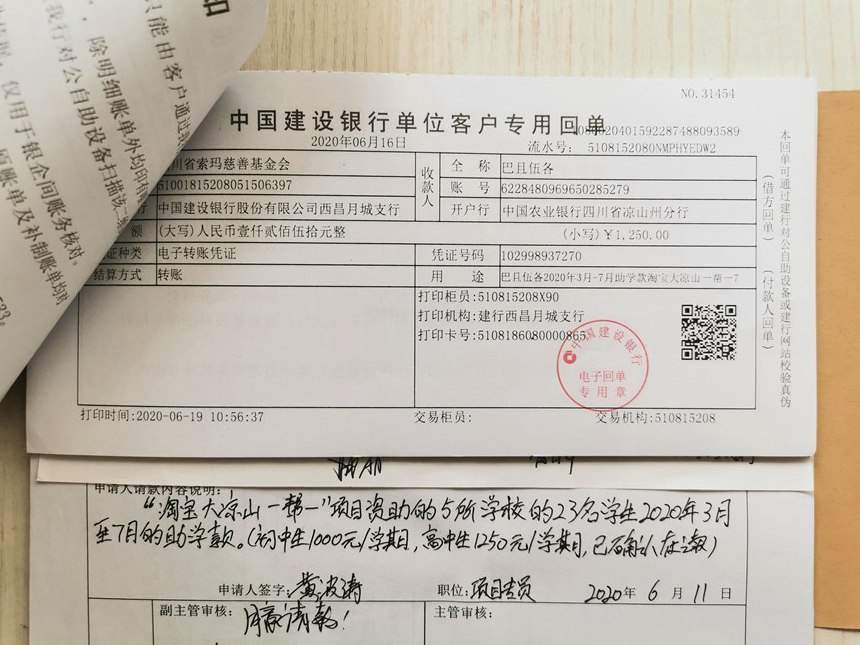 只能由客户通过
，除明细账单外均印有
我行对公自助设备扫描该
仅用于银企间账务核对。
账单及补制账单均对
533。
NO.31454
中国建设银行单位客户专用回单
2020年06月16日
流水号： 5108152080NMPHYEDW2
川省索玛慈善基金会
收款人
全 称
巴且伍各
51001815208051506397
账 号
6228480969650285279
中国建设银行股份有限公司西昌月城支行
开户行
中国农业银行四川省凉山州分行
额
(大写)人民币壹仟贰佰伍拾元整
(小写)￥1,250.00
证种类
电子转账凭证
凭证号码
102998937270
结算方式
转账
用 途
巴且伍各2020年3月-7月助学款淘宝大凉山一帮一7
打印柜员:510815208X90
打印机构:建行西昌月城支行
打印卡号:5108186080000865
中国建设银行
电子回单
专用章
打印时间:2020-06-19 10:56:37
交易柜员:
交易机构:510815208
本回单可通过建行对公自助设备或建行网站校验真伪
(借方回单)
(付款人回单)
申请人请款内容说明:
“淘宝大凉山一帮一”项目资助的5所学校的23名学生2020年3月
至7月的助学款。(初中生1000元/学期,高中生1250元/学期,已确认在读)
申请人签字:黄波涛
职位:项目专员
2020年 6 月 11 日
副主管审核:
主管审核: